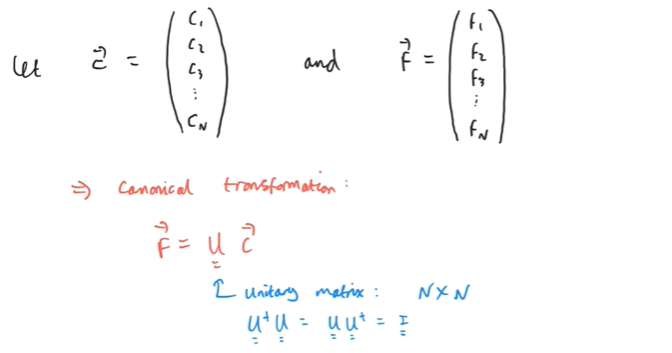 let c⃗ = (c₁ c₂ c₃ ⋮ c_N) and f⃗ = (f₁ f₂ f₃ ⋮ f_N)
⇒ Canonical transformation:
f⃗ = U c⃗
Unitary matrix: N×N
U†U = UU† = I